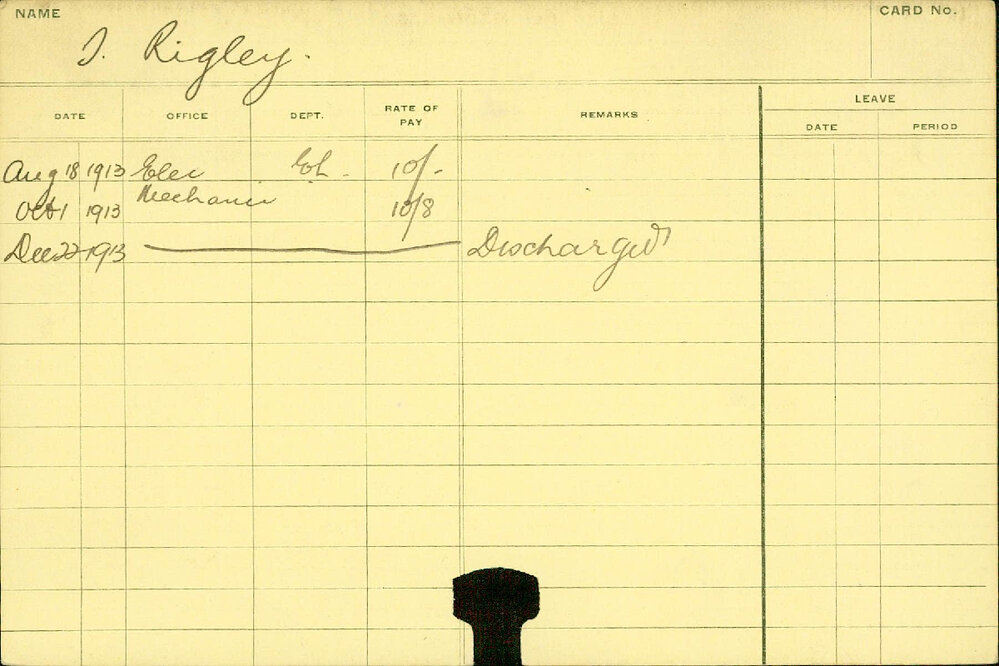 NAME CARD No.
J. Rigley.
LEAVE
DATE OFFICE DEPT. RATE OF PAY REMARKS DATE PERIOD
Aug 18 1913 Elec 10/-
Oct 1 1913 Mechanic 10/8
Dec 22 1913 Discharged